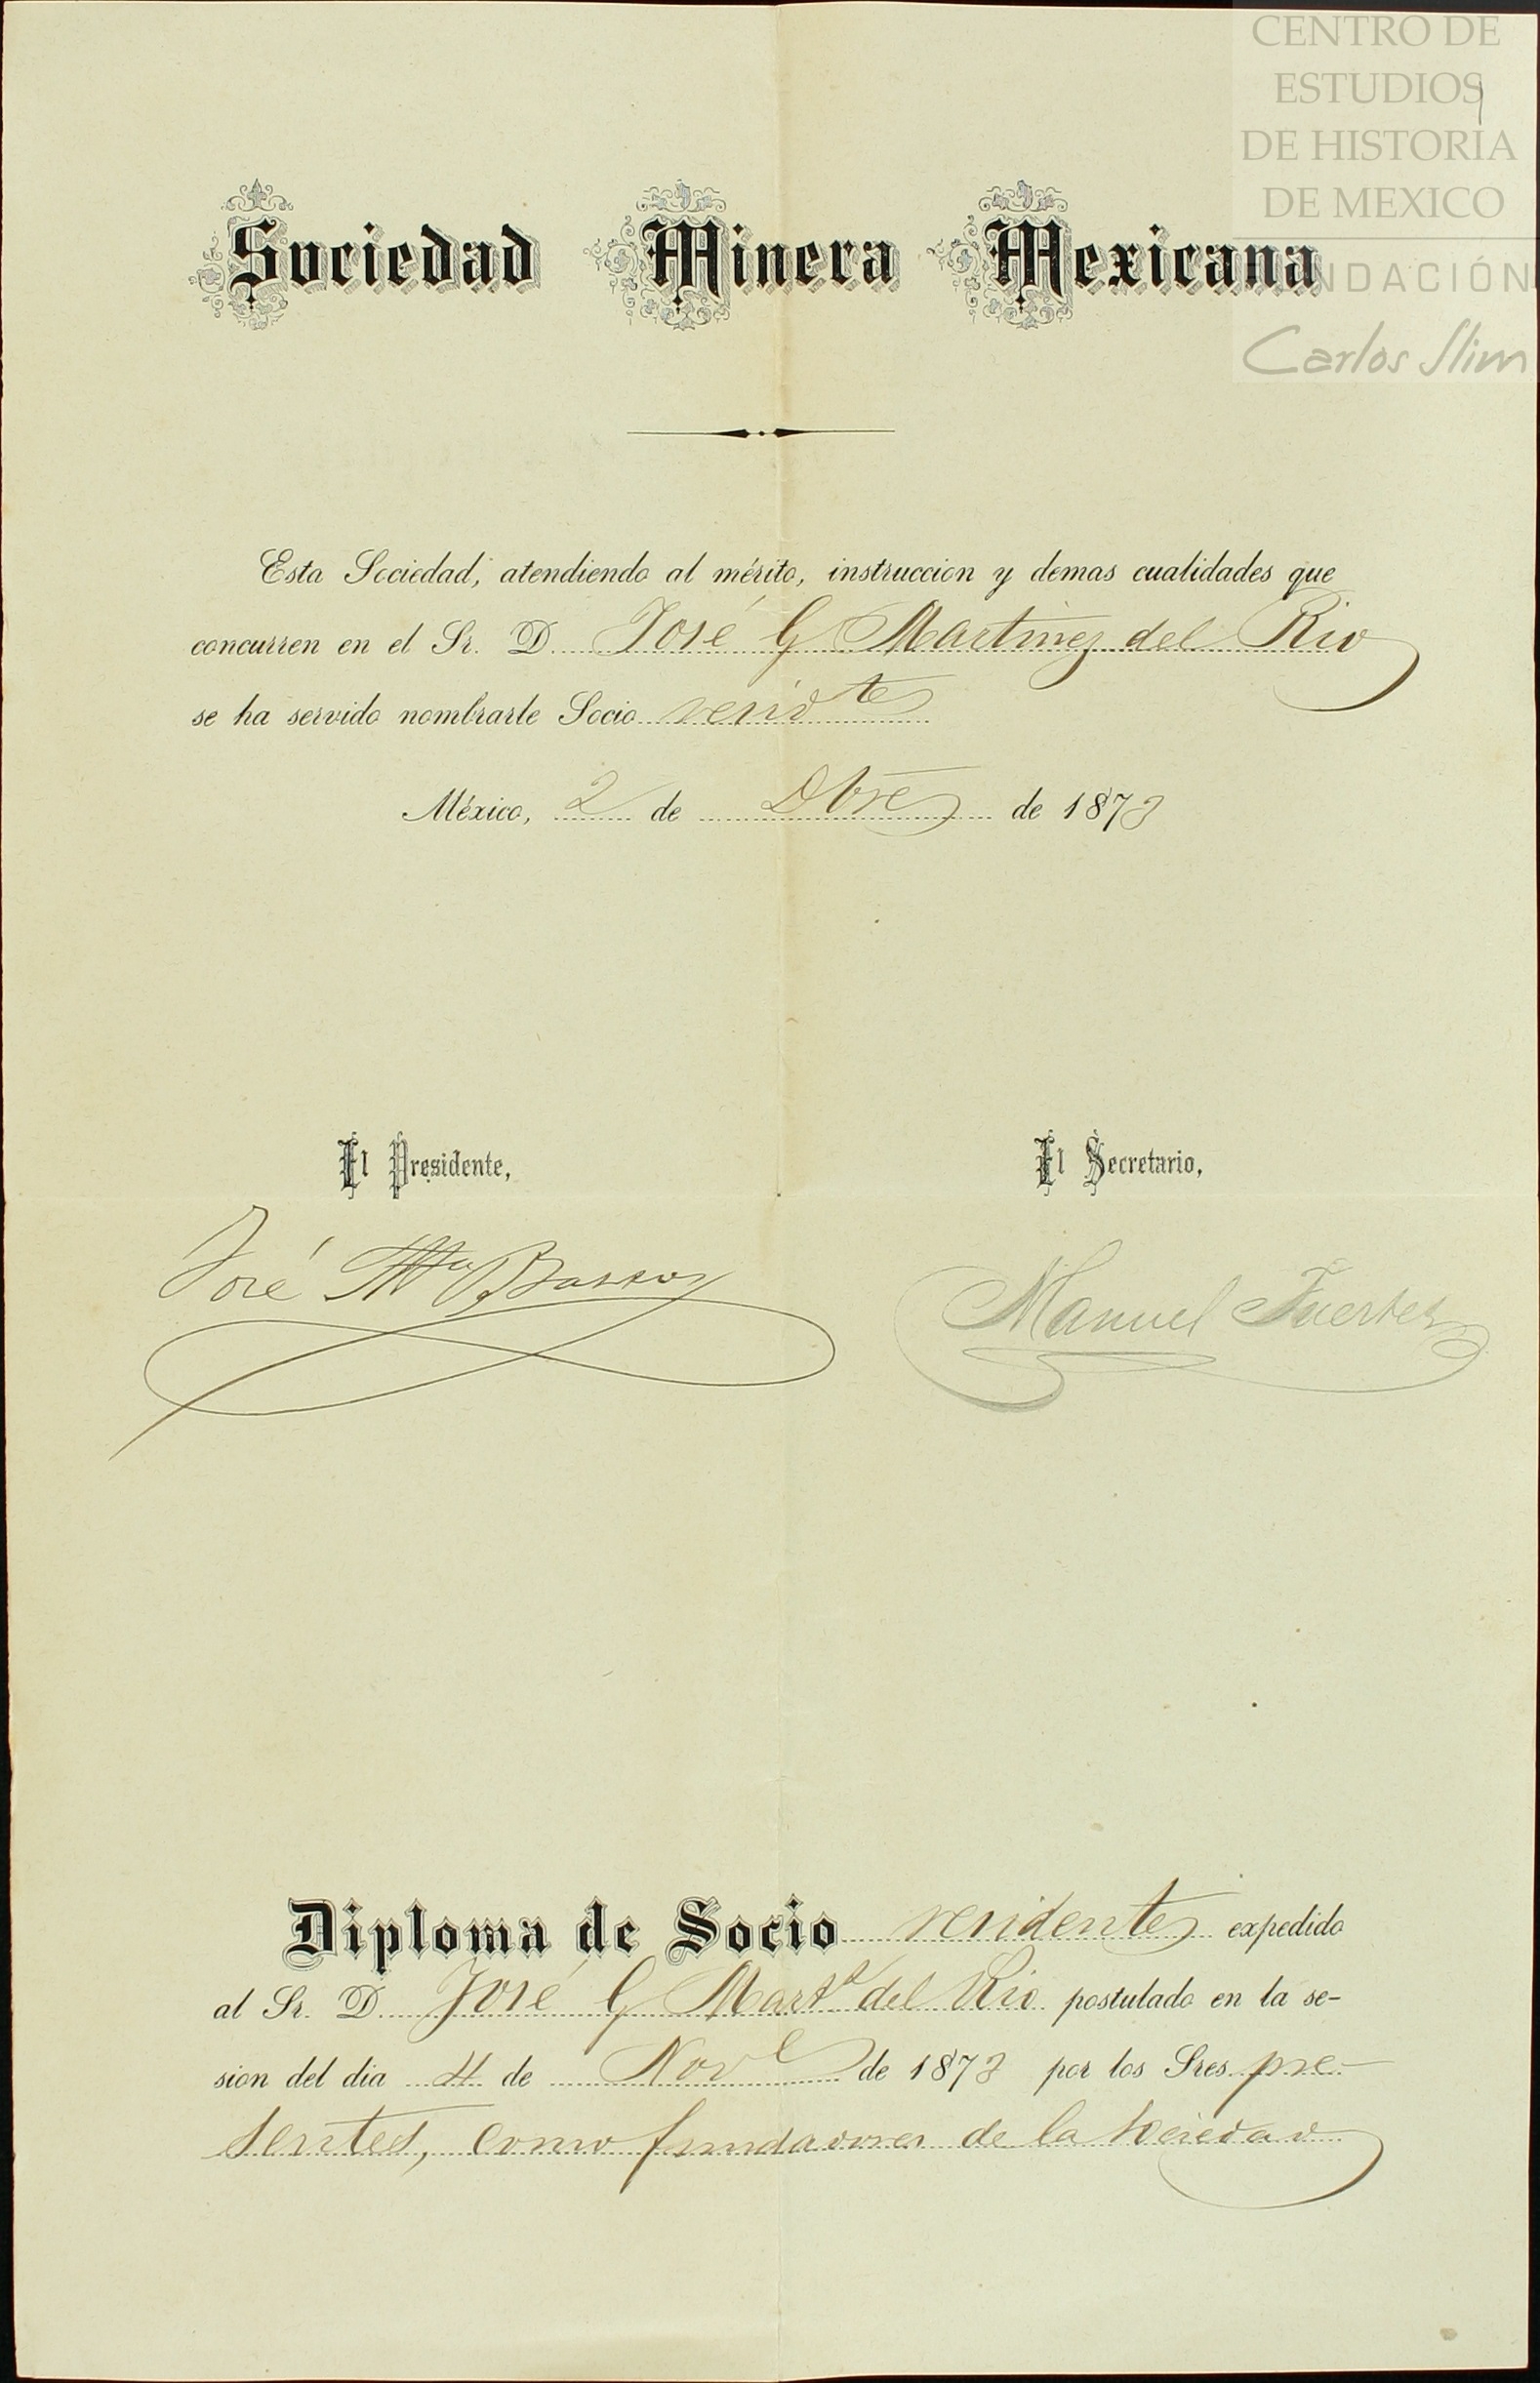 CENTRO DE
ESTUDIOS
DE HISTORIA
DE MEXICO
FUNDACIÓN
Carlos Slim
Sociedad Minera Mexicana
Esta Sociedad, atendiendo al mérito, instruccion y demas cualidades que
concurren en el Sr. D. José G Martinez del Rio
se ha servido nombrarle Socio resid.te
México, 2 de Dbre de 1873
El Presidente,
El Secretario,
José Ma Bassoz
Manuel Fuertes
Diploma de Socio residente expedido
al Sr. D. José G Mart.z del Rio postulado en la se-
sion del dia 4 de Nov.e de 1873 por los Sres. pre-
sentes, como fundadores de la sociedad